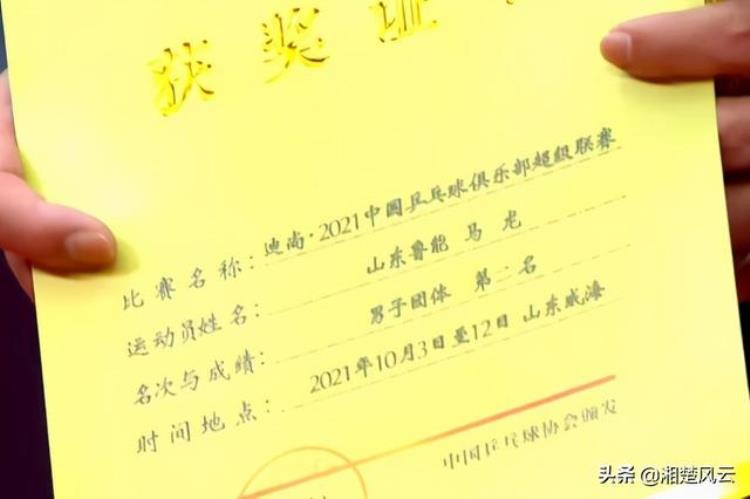 获奖证
比赛名称：迪尚·2021中国乒乓球俱乐部超级联赛
运动员姓名：山东鲁能 马龙
名次与成绩：男子团体 第二名
时间地点：2021年10月3日至12日 山东威海
中国乒乓球协会颁发
头条 @湘楚风云